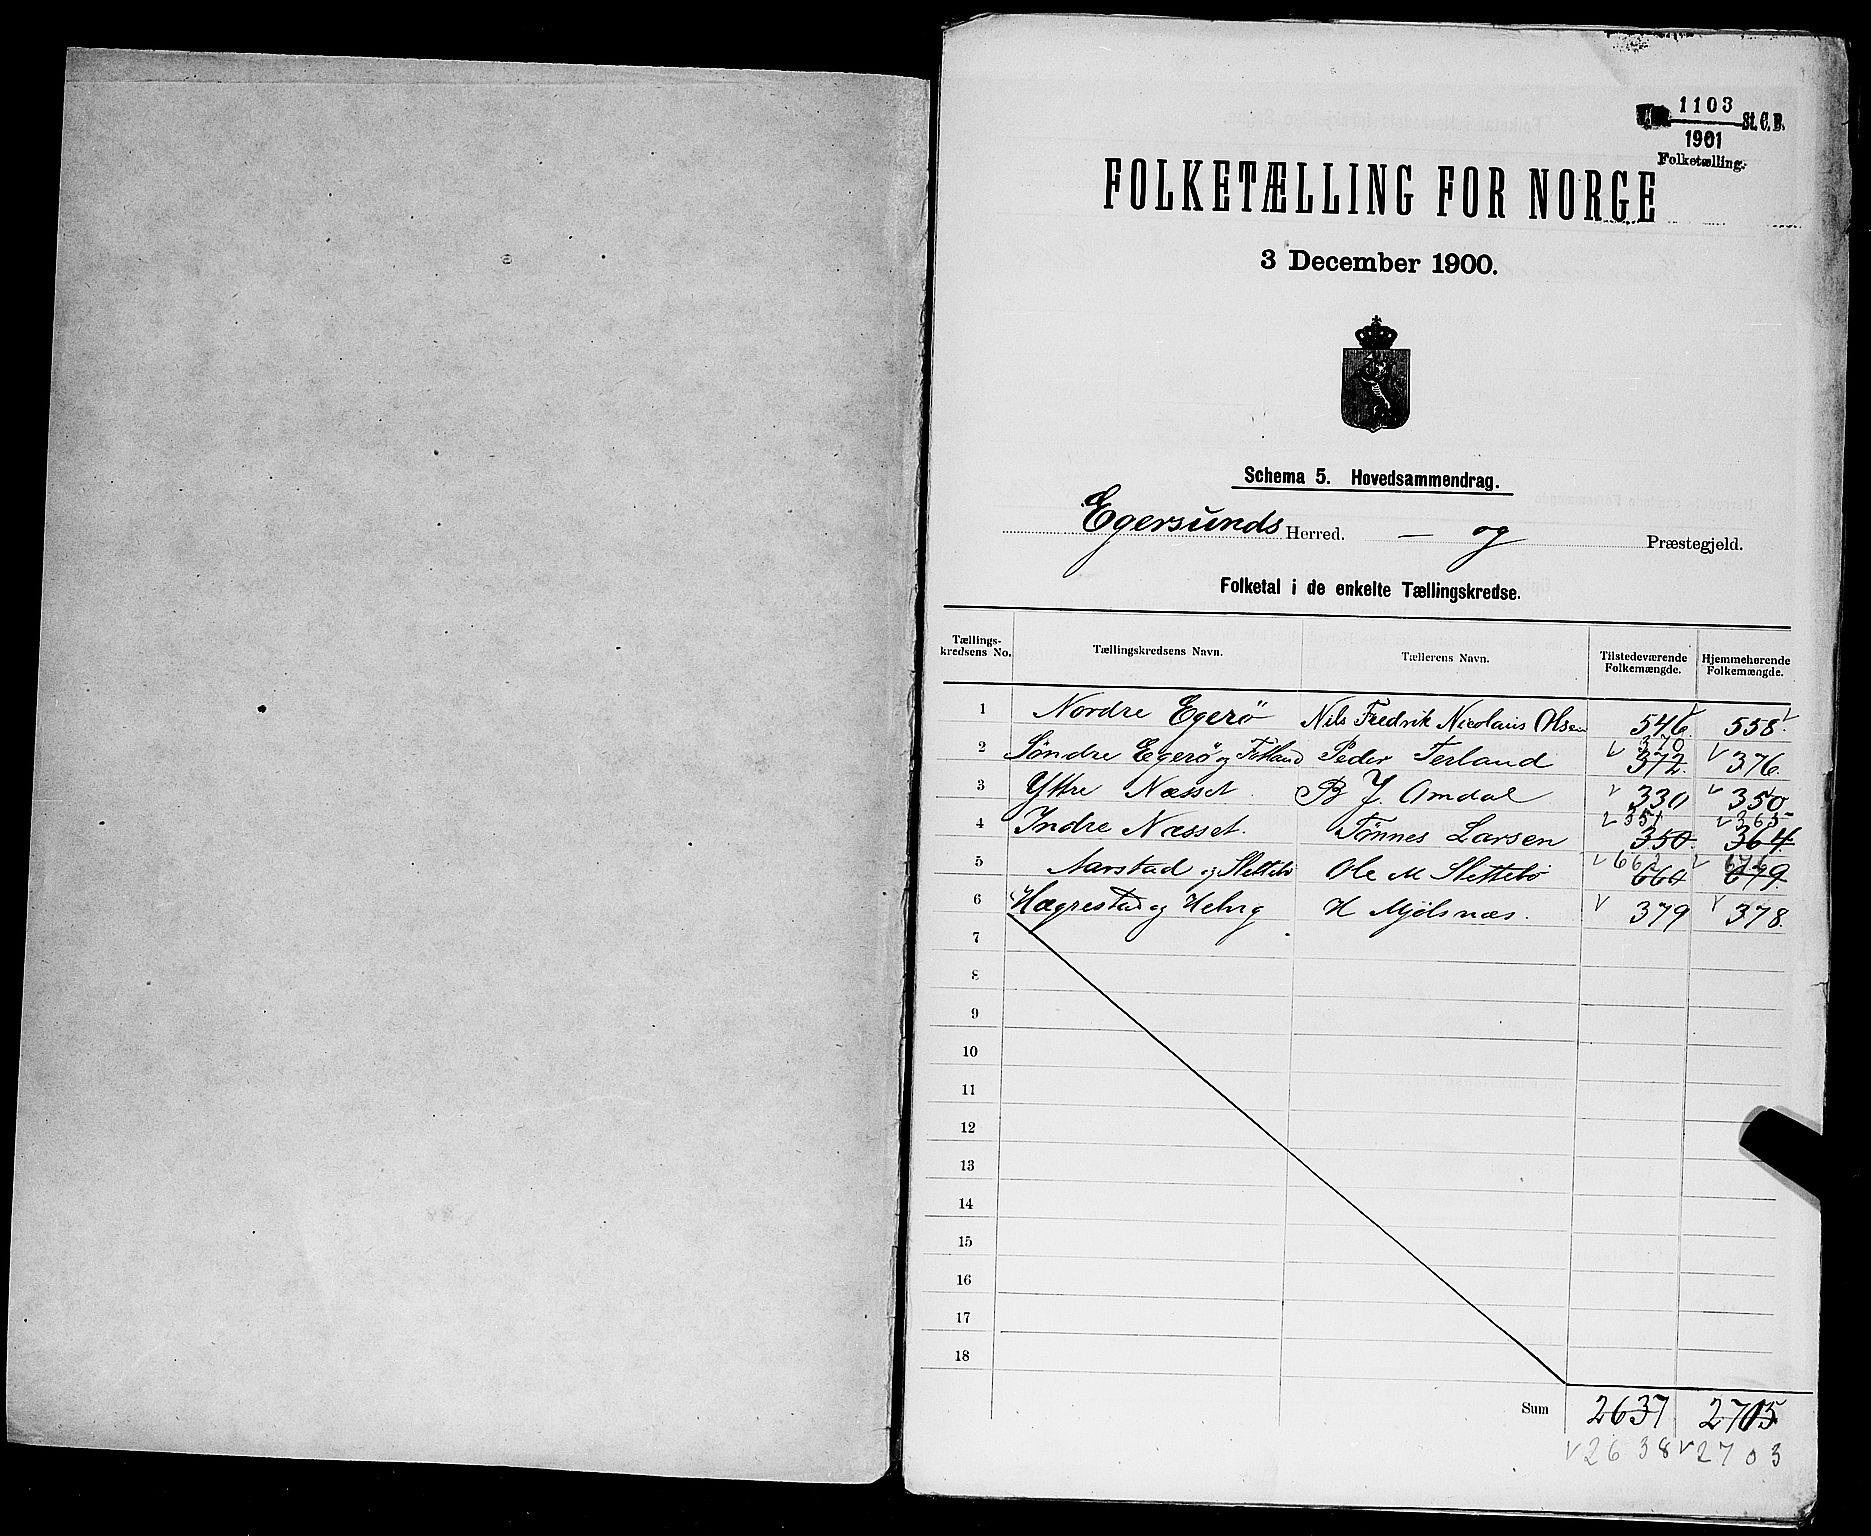 1103
1901 St. C. B.
Folketælling.
FOLKETÆLLING FOR NORGE
3 December 1900.
Schema 5. Hovedsammendrag.
Egersunds Herred. — og Præstegjeld.
Folketal i de enkelte Tællingskredse.
Tællings-kredsens No. Tællingskredsens Navn. Tællerens Navn. Tilstedeværende Folkemængde. Hjemmehørende Folkemængde.
1 Nordre Egerø Nils Fredrik Nicolaus Olsen 546 558
370
2 Søndre Egerø og Fotland Peder Terland 372 376
3 Yttre Næsset B J. Amdal 330 350
351 365
4 Indre Næsset Tønnes Larsen 350 364
662 676
5 Aarstad og Slettebø Ole M Slettebø 660 679
6 Hægrestad og Helvig H Mjølsnæs. 379 378
7
8
9
10
11
12
13
14
15
16
17
18
Sum 2637 2705
2638 2703